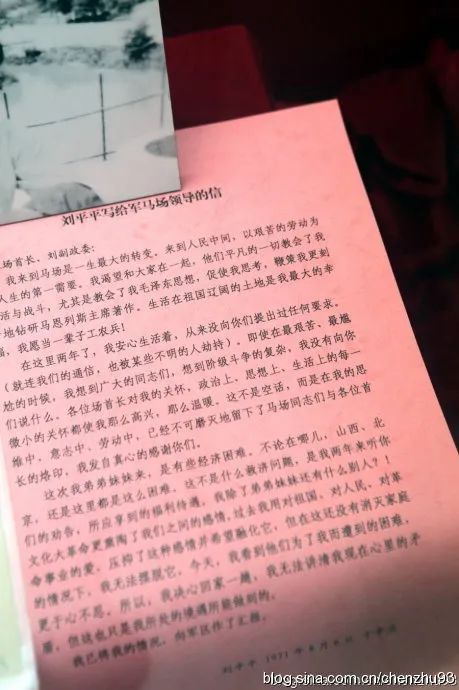 刘平平写给军马场领导的信
场首长、刘副政委:
我来到马场是一生最大的转变。来到人民中间,以艰苦的劳动为
人生的第一需要。我渴望和大家在一起,他们平凡的一切教会了我
活与战斗,尤其是教会了我毛泽东思想,促使我思考,鞭策我更刻
地钻研马恩列斯主席著作。生活在祖国辽阔的土地是我最大的幸
福,我愿当一辈子工农兵!
在这里两年了,我安心生活着,从来没向你们提出过任何要求。
(就连我们的通信,也被某些不明的人劫持)。即使在最艰苦、最尴
尬的时候,我想到广大的同志们,想到阶级斗争的复杂,我没有向你
们说什么。各位场首长对我的关怀,政治上、思想上、生活上的每一
微小的关怀都使我那么高兴,那么温暖。这不是空话,而是在我的思
维中,意志中、劳动中,已经不可磨灭地留下了马场同志们与各位首
长的烙印。我发自真心的感谢你们。
这次我弟弟妹妹来,是有些经济困难。不论在哪儿,山西、北
京,还是这里都是这么困难。这不是什么救济问题,是我两年来听你
们的劝告,所应享到的福利待遇。我除了弟弟妹妹还有什么别人?!
文化大革命更熏陶了我们之间的感情,过去我用对祖国、对人民、对革
命事业的爱,压抑了这种感情并希望融化它,但在这还没有消灭家庭
的情况下,我无法摆脱它。今天,我看到他们为了我而遭到的困难,
更于心不忍。所以,我决心回家一趟,我无法讲清我现在心里的矛
盾,但这也只是我所处的境遇所能做到的。
我已将我的情况,向军区作了汇报。
刘平平 1971年8月6日
blog.sina.com.cn/chenzhu93